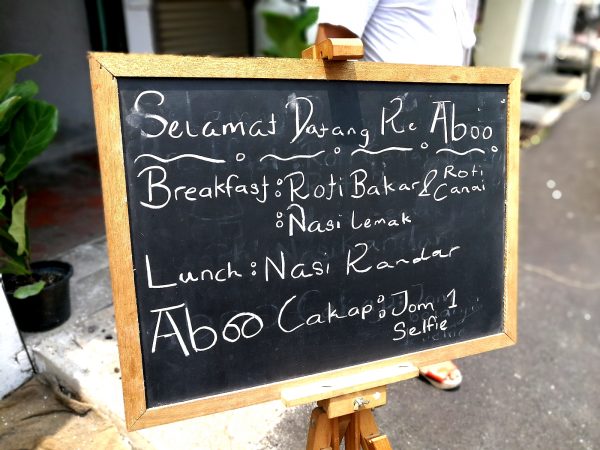 Selamat Datang Ke Aboo
Breakfast: Roti Bakar & Roti Canai
: Nasi Lemak
Lunch: Nasi Kandar
Aboo Cakap: Jom 1
Selfie